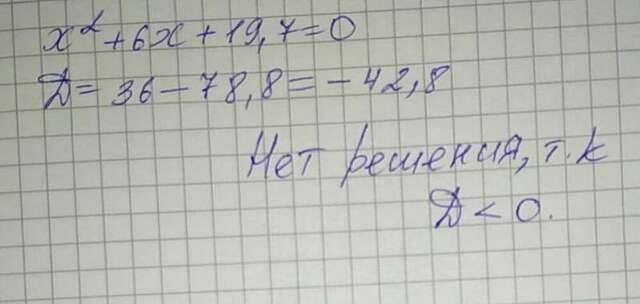 x² + 6x + 19,7 = 0
D = 36 - 78,8 = - 42,8
Нет решения, т. к
D < 0.